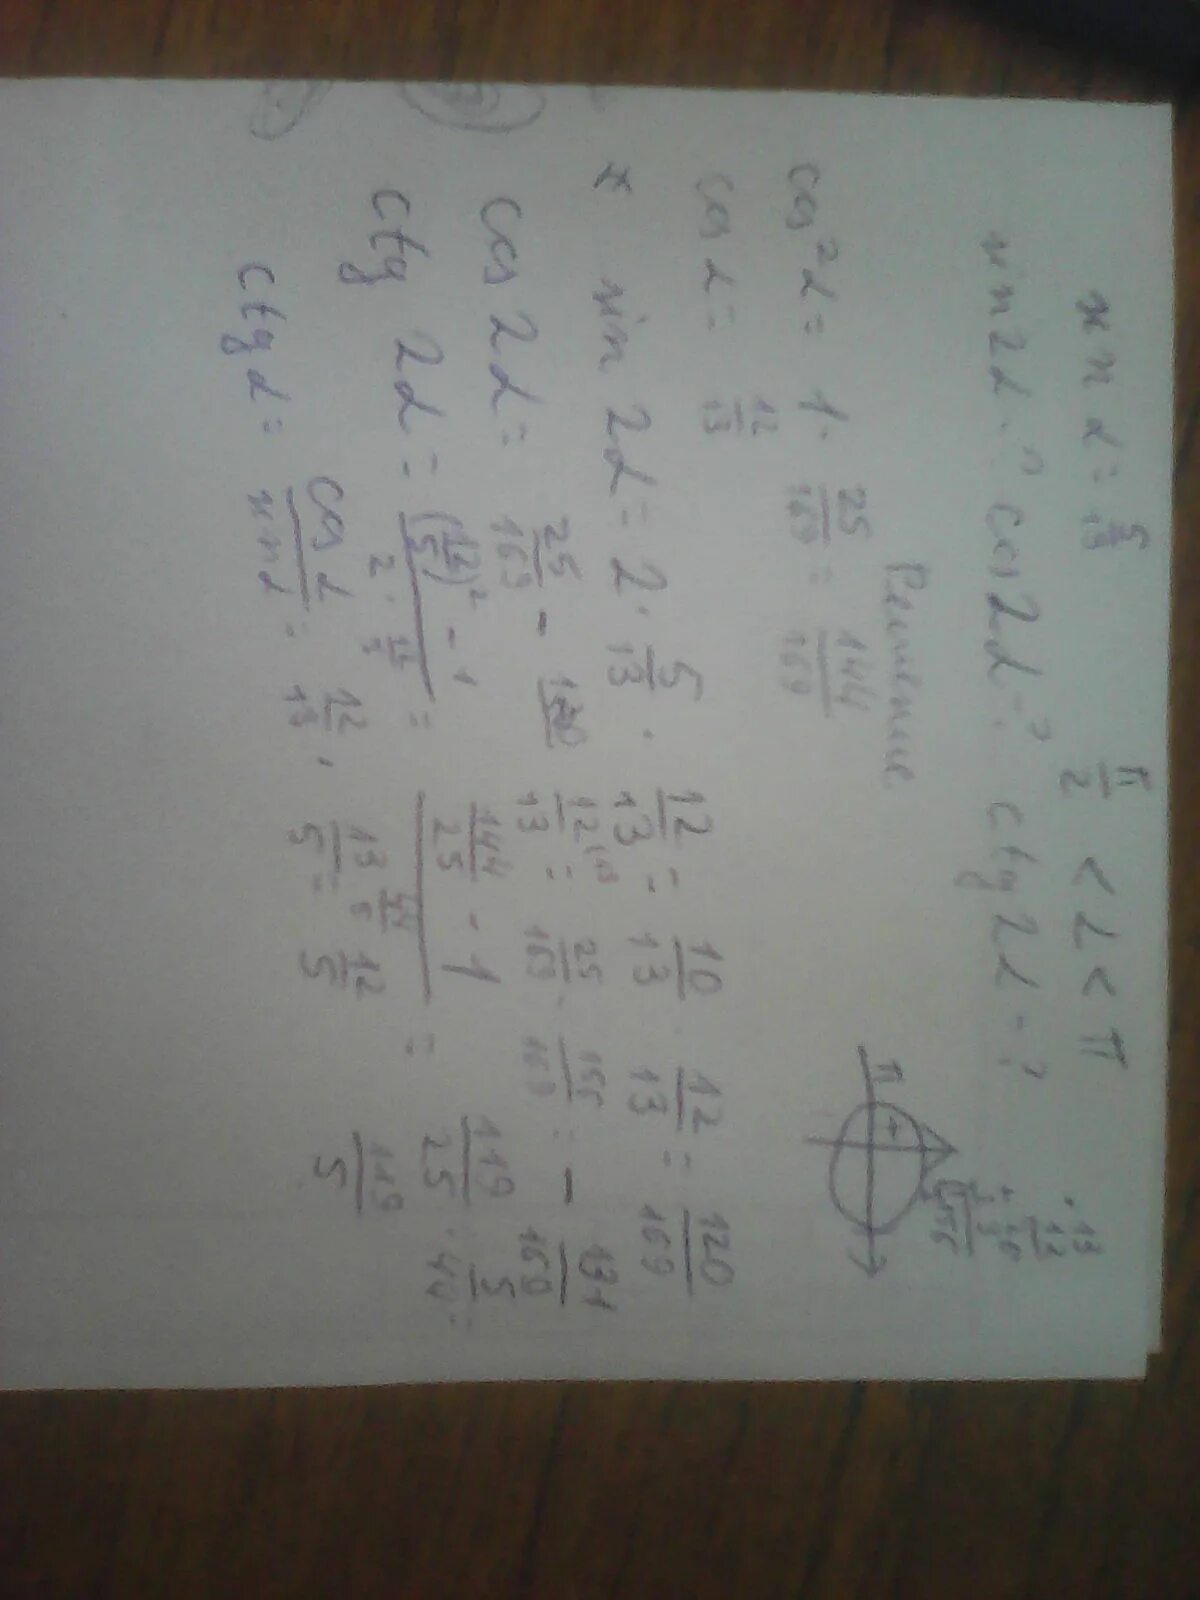 sin α = 5/13   π/2 < α < π
sin 2α - ? cos 2α - ? ctg 2α - ?
Решение
cos²α = 1 - 25/169 = 144/169
cos α = 12/13
sin 2α = 2 · 5/13 · 12/13 = 10/13 · 12/13 = 120/169
cos 2α = 25/169 - 12/13 = 25/169 - 156/169 = - 131/169
ctg 2α = ((12/5)² - 1)/(2 · 12/5) = (144/25 - 1)/ = 119/25 · 5/ = 119/5
ctg α = cos α/sin α = 12/13 · 13/5 = 12/5
π
+